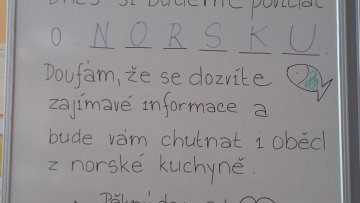 Dnes si budeme povídat
o NORSKU.
Doufám, že se dozvíte
zajímavé informace a
bude vám chutnat i oběd
z norské kuchyně.